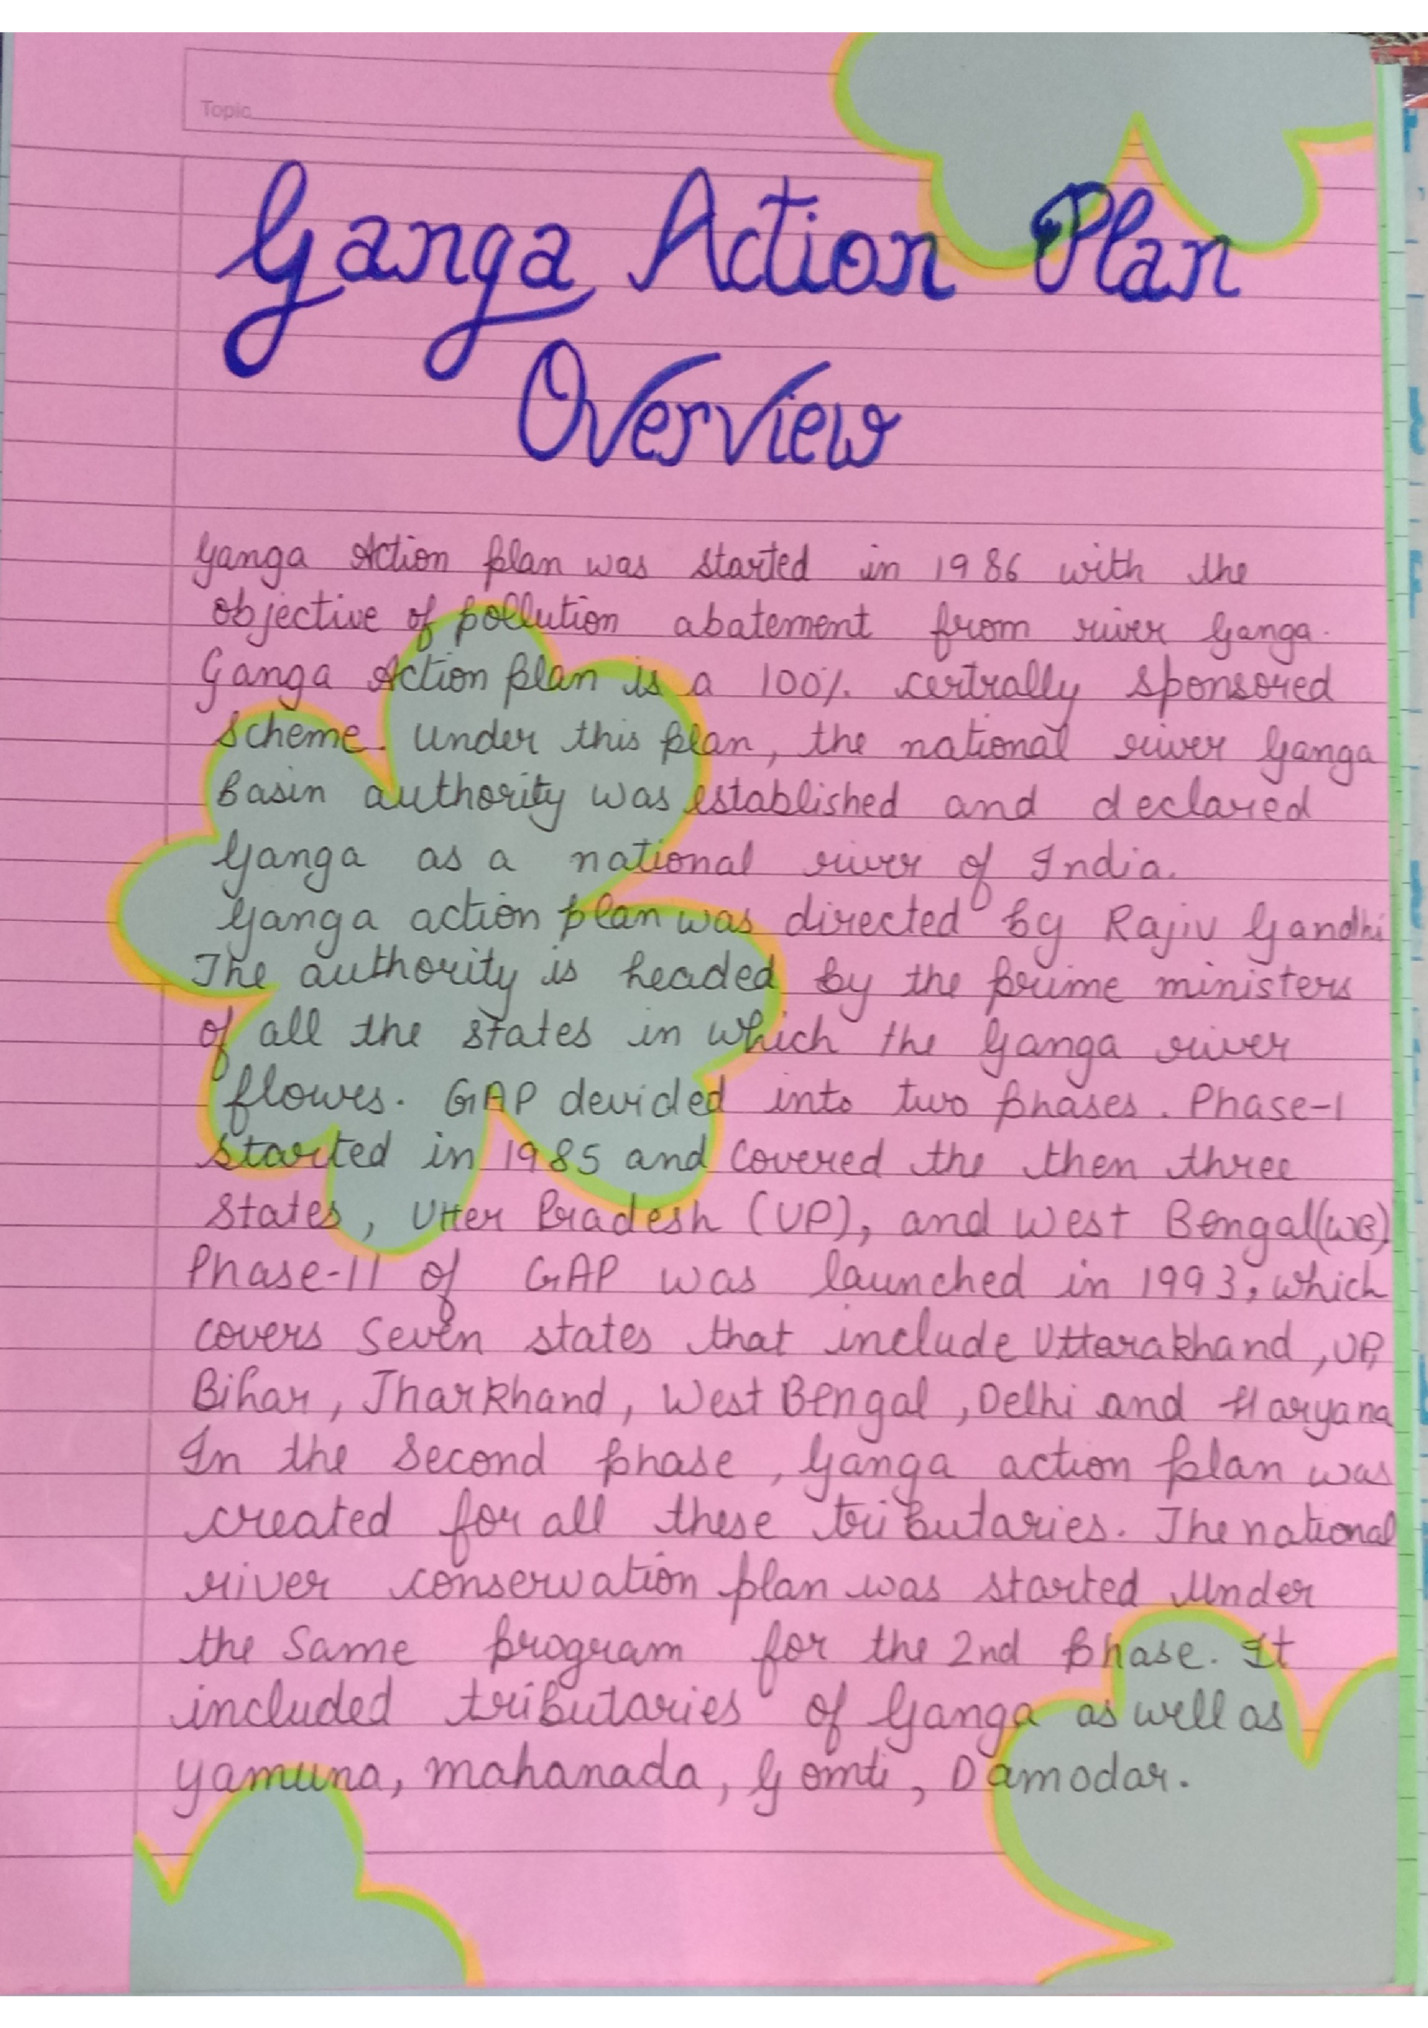 Topic
Ganga Action Plan
Overview
Ganga Action plan was started in 1986 with the
objective of pollution abatement from river Ganga.
Ganga Action plan is a 100% certrally sponsored
scheme. Under this plan, the national river Ganga
Basin authority was established and declared
Ganga as a national river of India.
Ganga action plan was directed by Rajiv Gandhi
The authority is headed by the prime ministers
of all the states in which the Ganga river
flowes. GAP devided into two phases. Phase-I
started in 1985 and covered the then three
states, Utter Pradesh (UP), and West Bengal(WB).
Phase-II of GAP was launched in 1993, which
covers seven states that include Uttarakhand, UP,
Bihar, Jharkhand, West Bengal, Delhi and Haryana
In the second phase, Ganga action plan was
created for all these tributaries. The national
river conservation plan was started under
the same program for the 2nd phase. It
included tributaries of Ganga as well as
yamuna, mahanada, Gomti, Damodar.